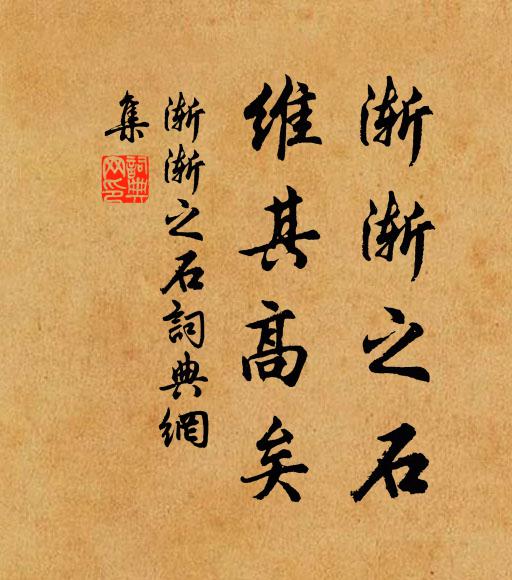 渐渐之石
维其高矣
渐渐之石詞典網
集
詞典
网印